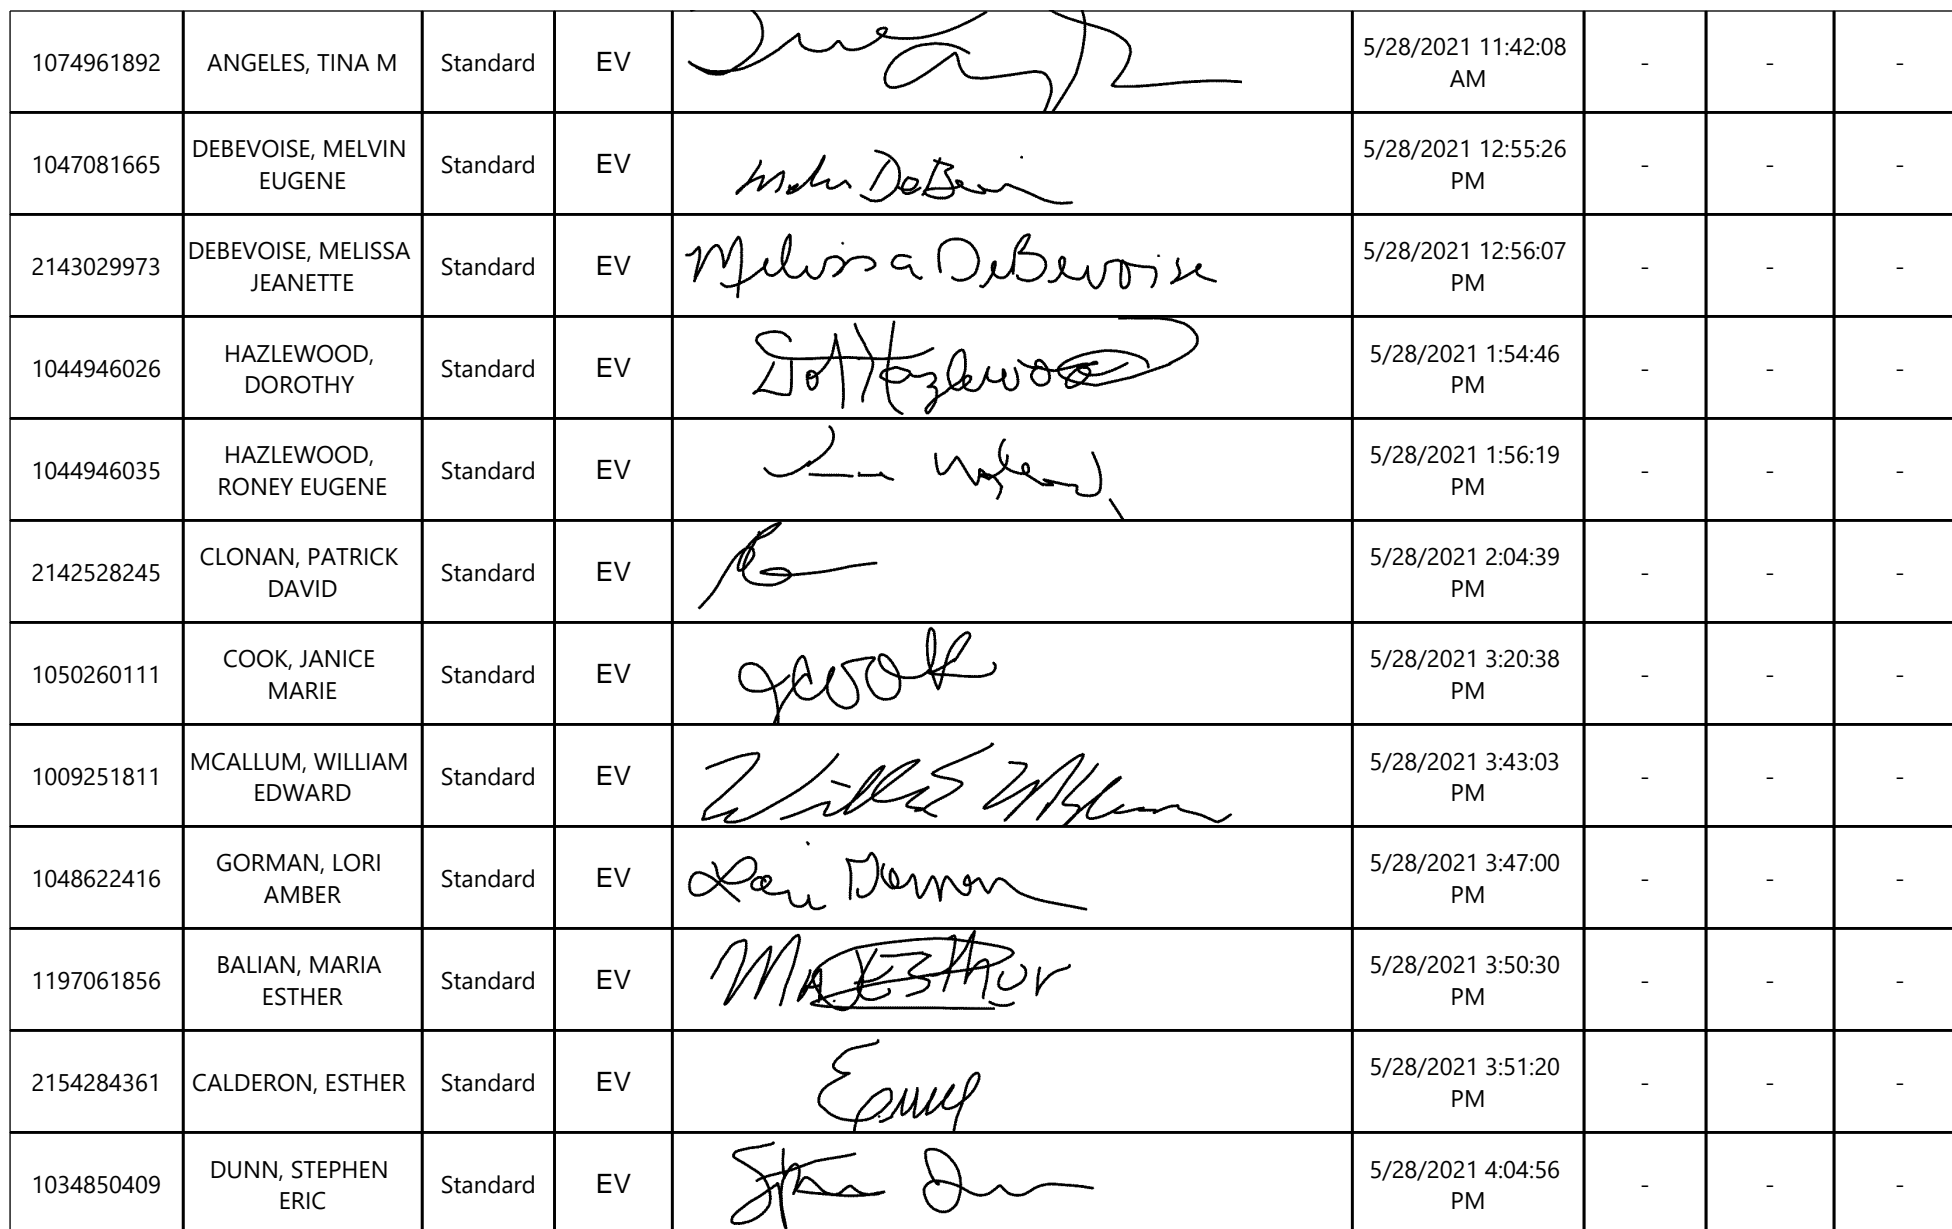 1074961892 ANGELES, TINA M Standard EV 5/28/2021 11:42:08 AM - - -
1047081665 DEBEVOISE, MELVIN EUGENE Standard EV 5/28/2021 12:55:26 PM - - -
2143029973 DEBEVOISE, MELISSA JEANETTE Standard EV Melissa DeBevoise 5/28/2021 12:56:07 PM - - -
1044946026 HAZLEWOOD, DOROTHY Standard EV Dot Hazlewood 5/28/2021 1:54:46 PM - - -
1044946035 HAZLEWOOD, RONEY EUGENE Standard EV 5/28/2021 1:56:19 PM - - -
2142528245 CLONAN, PATRICK DAVID Standard EV 5/28/2021 2:04:39 PM - - -
1050260111 COOK, JANICE MARIE Standard EV JCook 5/28/2021 3:20:38 PM - - -
1009251811 MCALLUM, WILLIAM EDWARD Standard EV 5/28/2021 3:43:03 PM - - -
1048622416 GORMAN, LORI AMBER Standard EV Lori Gorman 5/28/2021 3:47:00 PM - - -
1197061856 BALIAN, MARIA ESTHER Standard EV 5/28/2021 3:50:30 PM - - -
2154284361 CALDERON, ESTHER Standard EV 5/28/2021 3:51:20 PM - - -
1034850409 DUNN, STEPHEN ERIC Standard EV 5/28/2021 4:04:56 PM - - -